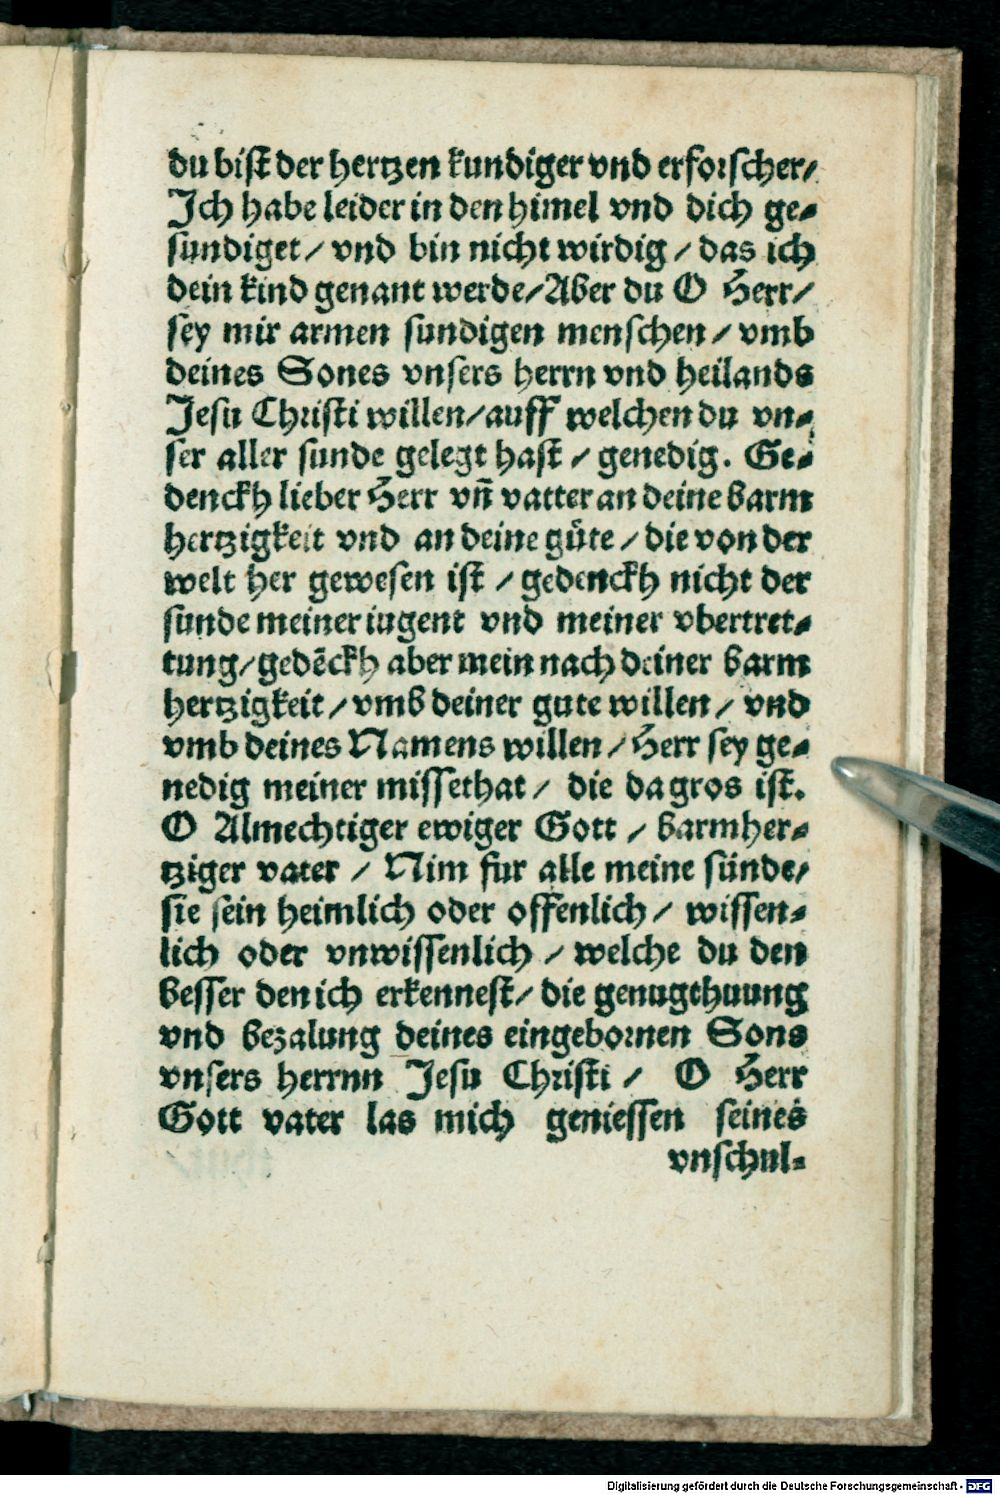 du bist der hertzen kundiger vnd erforscher/
Ich habe leider in den himel vnd dich ge-
sundiget/ vnd bin nicht wirdig/ das ich
dein kind genant werde/ Aber du O Herr/
sey mir armen sundigen menschen/ vmb
deines Sones vnsers herrn vnd heilands
Jesu Christi willen/ auff welchen du vn-
ser aller sunde gelegt hast/ genedig. Ge-
denckh lieber Herr vñ vatter an deine barm
hertzigkeit vnd an deine gůte/ die von der
welt her gewesen ist/ gedenckh nicht der
sunde meiner iugent vnd meiner vbertret-
tung/ gedēckh aber mein nach deiner barm
hertzigkeit/ vmb deiner gute willen/ vnd
vmb deines Namens willen/ Herr sey ge-
nedig meiner missethat/ die da gros ist.
O Almechtiger ewiger Gott/ barmher-
tziger vater/ Nim fur alle meine sünde/
sie sein heimlich oder offenlich/ wissen-
lich oder vnwissenlich/ welche du den
besser den ich erkennest/ die genugthuung
vnd bezalung deines eingebornen Sons
vnsers herrnn Jesu Christi/ O Herr
Gott vater las mich geniessen seines
vnschul-
Digitalisierung gefördert durch die Deutsche Forschungsgemeinschaft - DFG